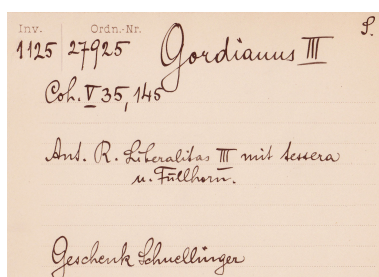 Inv. Ordn.-Nr. S.
1125 27925 Gordianus III
Coh. V 35, 145
Ant. R. Liberalitas III mit tessera
u. Füllhorn.
Geschenk Schnellinger